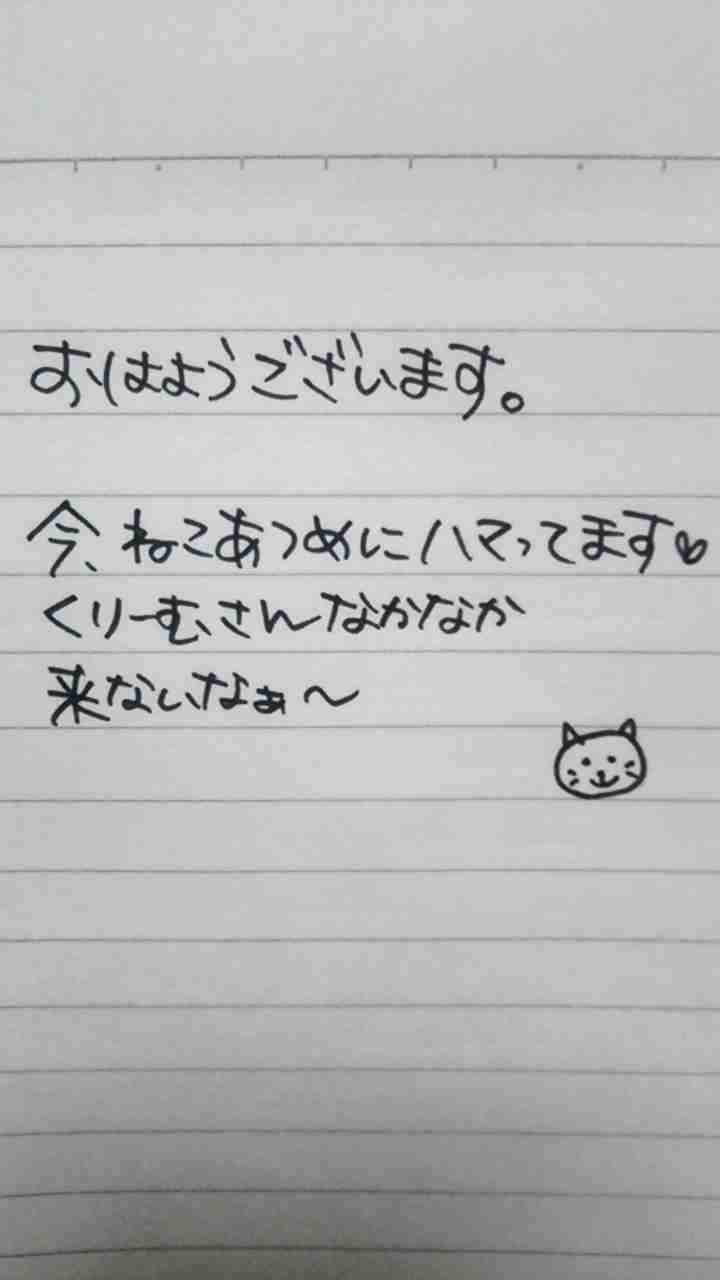 おはようございます。
今、ねこあつめにハマってます♡
くりーむさんなかなか
来ないなぁ〜